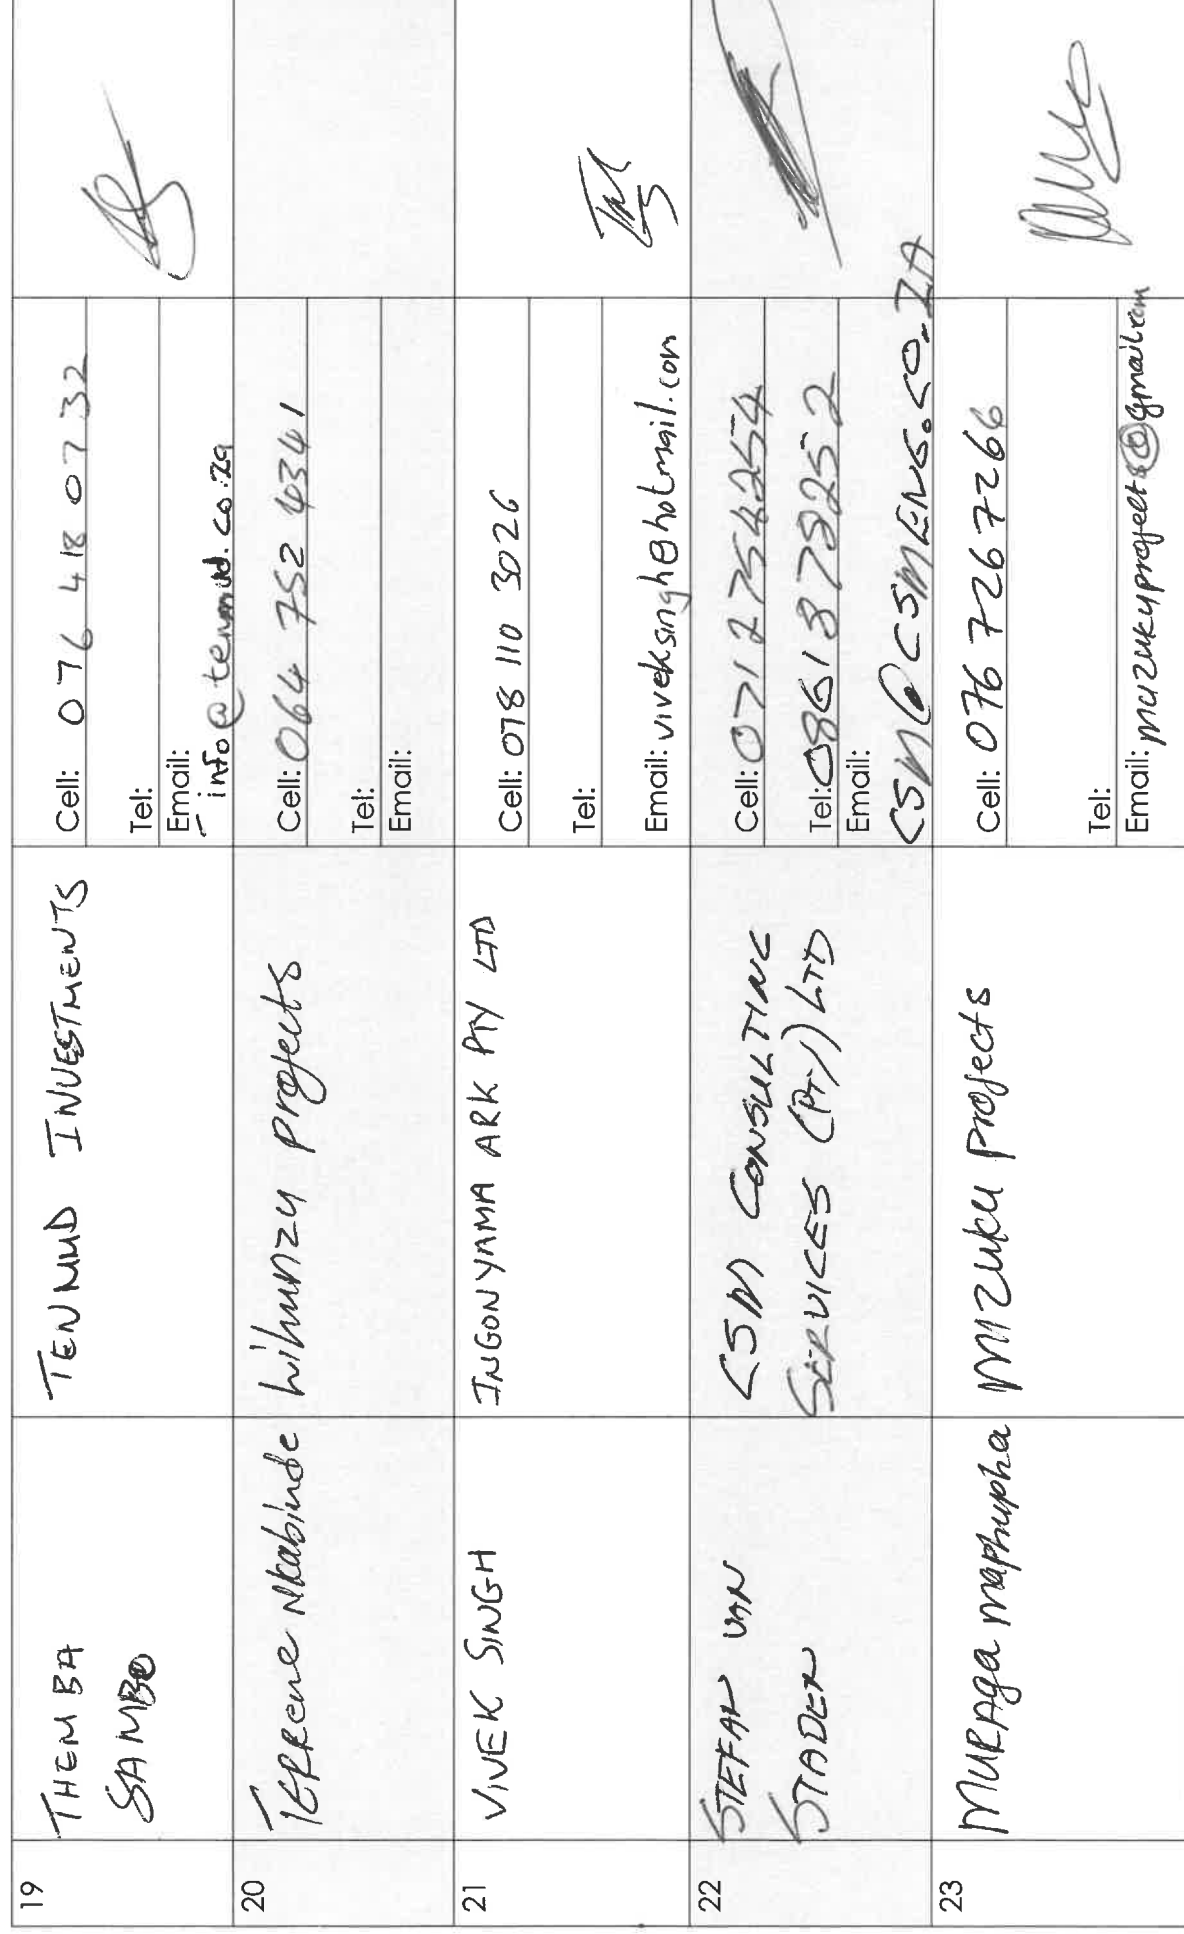 19
THEMBA
SAMBO
TENMMD INVESTMENTS
Cell: 076 418 0732
Tel:
Email:
info@tenmmd.co.za
20
TERRENE Nkabinde
Lihunzu projects
Cell: 064 752 4341
Tel:
Email:
21
VIVEK SINGH
INGONYAMA ARK PTY LTD
Cell: 078 110 3026
Tel:
Email: viveksingh@hotmail.com
22
STEFAN VAN
STADEN
CSM CONSULTING
SERVICES (PTY) LTD
Cell: 0712754254
Tel: 0861878252
Email:
CSM@CSMENG.CO.ZA
23
MURAga maphupha
MIZUKU projects
Cell: 076 7267266
Tel:
Email: mizukuprojects@gmail.com